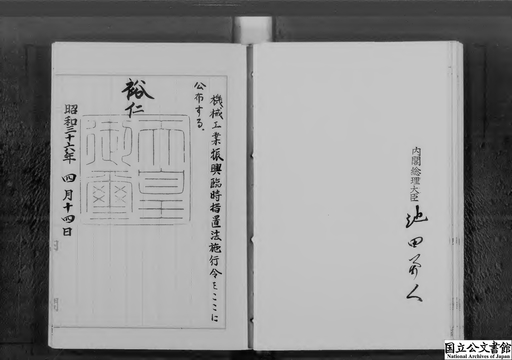 内閣総理大臣
池田勇人
機械工業振興臨時措置法施行令をここに
公布する。
裕仁
天皇
御璽
昭和三十六年 四月十四日
国立公文書館
National Archives of Japan